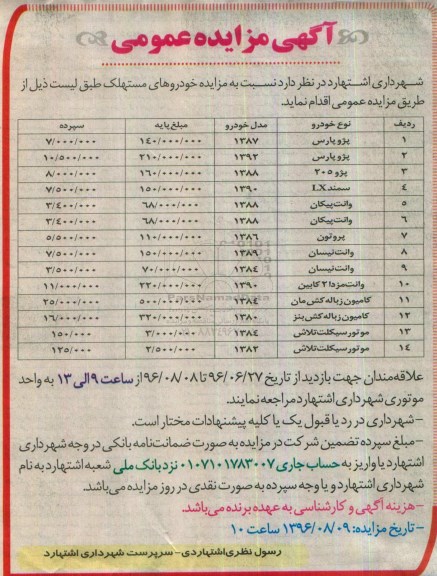 آگهی مزایده عمومی
شهرداری اشتهارد در نظر دارد نسبت به مزایده خودروهای مستهلک طبق لیست ذیل از
طریق مزایده عمومی اقدام نماید.
ردیف نوع خودرو مدل خودرو مبلغ پایه سپرده
۱ پژو پارس ۱۳۸۷ ۱۴۰/۰۰۰/۰۰۰ ۷/۰۰۰/۰۰۰
۲ پژو پارس ۱۳۹۲ ۲۱۰/۰۰۰/۰۰۰ ۱۰/۵۰۰/۰۰۰
۳ پژو ۲۰۵ ۱۳۸۸ ۱۶۰/۰۰۰/۰۰۰ ۸/۰۰۰/۰۰۰
۴ سمند LX ۱۳۹۰ ۱۵۰/۰۰۰/۰۰۰ ۷/۵۰۰/۰۰۰
۵ وانت پیکان ۱۳۸۸ ۶۸/۰۰۰/۰۰۰ ۳/۴۰۰/۰۰۰
۶ وانت پیکان ۱۳۸۸ ۶۸/۰۰۰/۰۰۰ ۳/۴۰۰/۰۰۰
۷ پروتون ۱۳۸۶ ۱۱۰/۰۰۰/۰۰۰ ۵/۵۰۰/۰۰۰
۸ وانت نیسان ۱۳۸۹ ۱۵۰/۰۰۰/۰۰۰ ۷/۵۰۰/۰۰۰
۹ وانت نیسان ۱۳۸۴ ۷۰/۰۰۰/۰۰۰ ۳/۵۰۰/۰۰۰
۱۰ وانت مزدا ۲ کابین ۱۳۹۰ ۲۲۰/۰۰۰/۰۰۰ ۱۱/۰۰۰/۰۰۰
۱۱ کامیون زباله کش مان ۱۳۸۴ ۵۰۰/۰۰۰/۰۰۰ ۲۵/۰۰۰/۰۰۰
۱۲ کامیون زباله کش بنز ۱۳۸۰ ۳۲۰/۰۰۰/۰۰۰ ۱۶/۰۰۰/۰۰۰
۱۳ موتور سیکلت تلاش ۱۳۸۴ ۳/۰۰۰/۰۰۰ ۱۵۰/۰۰۰
۱۴ موتور سیکلت تلاش ۱۳۸۲ ۲/۵۰۰/۰۰۰ ۱۲۵/۰۰۰
علاقه‌مندان جهت بازدید از تاریخ ۹۶/۰۶/۲۷ تا ۹۶/۰۸/۰۸ از ساعت ۹ الی ۱۳ به واحد
موتوری شهرداری اشتهارد مراجعه نمایند.
- شهرداری در رد یا قبول یک یا کلیه پیشنهادات مختار است.
- مبلغ سپرده تضمین شرکت در مزایده به صورت ضمانت‌نامه بانکی در وجه شهرداری
اشتهارد یا واریز به حساب جاری ۰۱۰۷۱۰۱۷۸۳۰۰۷ نزد بانک ملی شعبه اشتهارد به نام
شهرداری اشتهارد و یا وجه سپرده به صورت نقدی در روز مزایده می‌باشد.
- هزینه آگهی و کارشناسی به عهده برنده می‌باشد.
- تاریخ مزایده: ۱۳۹۶/۰۸/۰۹ ساعت ۱۰
رسول نظری اشتهاردی - سرپرست شهرداری اشتهارد